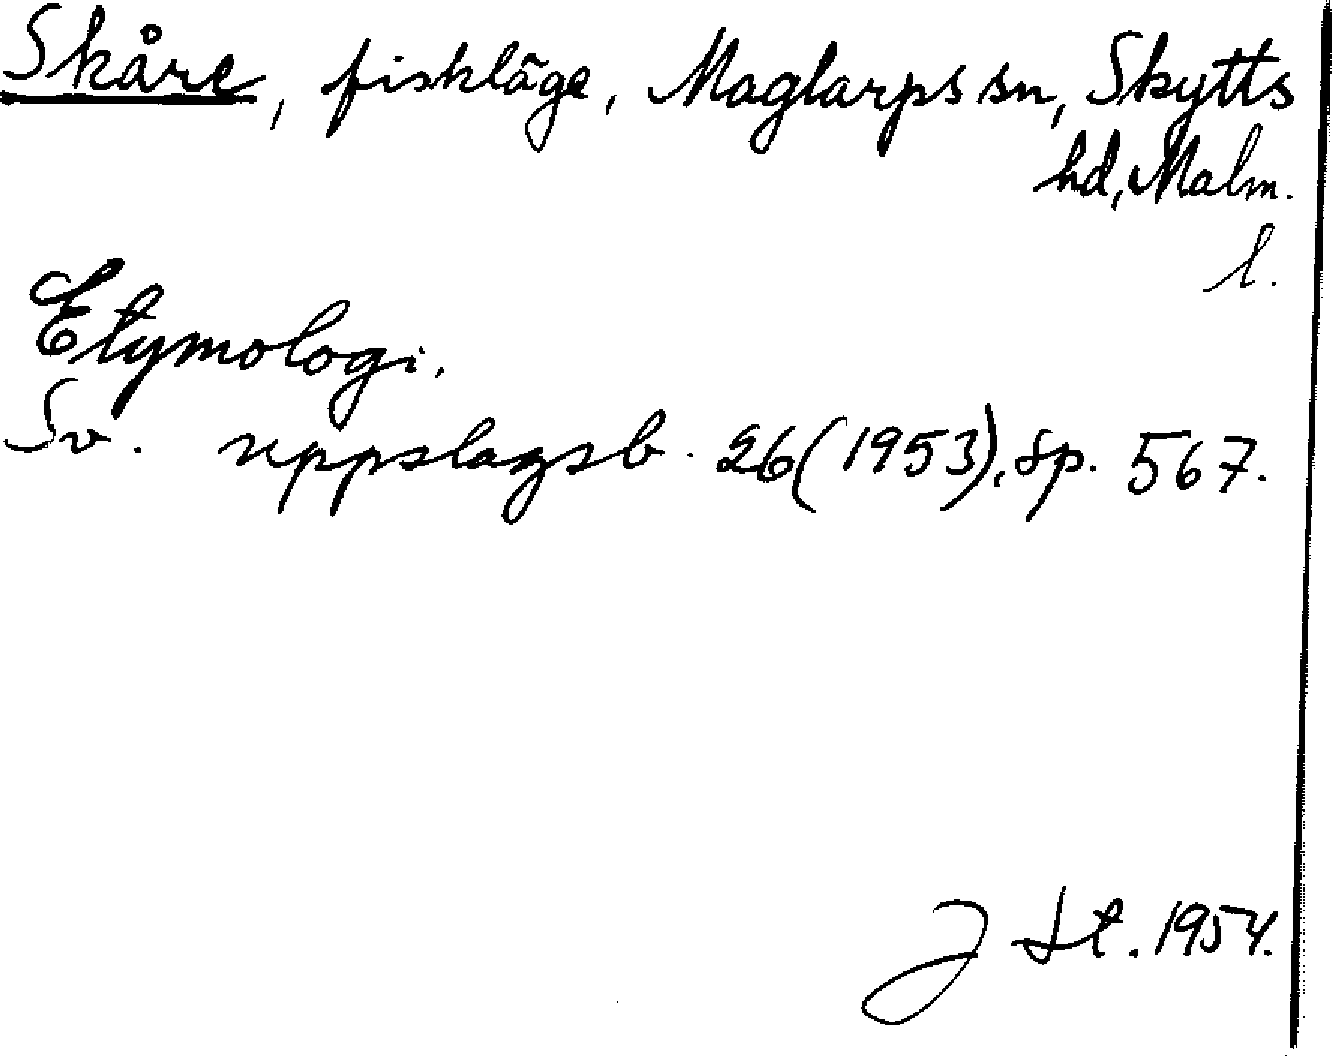 Skåre, fiskläge, Maglarps sn, Skytts
hd, Malm.
l.
Etymologi.
Sv. uppslagsb. 26 (1953), sp. 567.
J St. 1954.